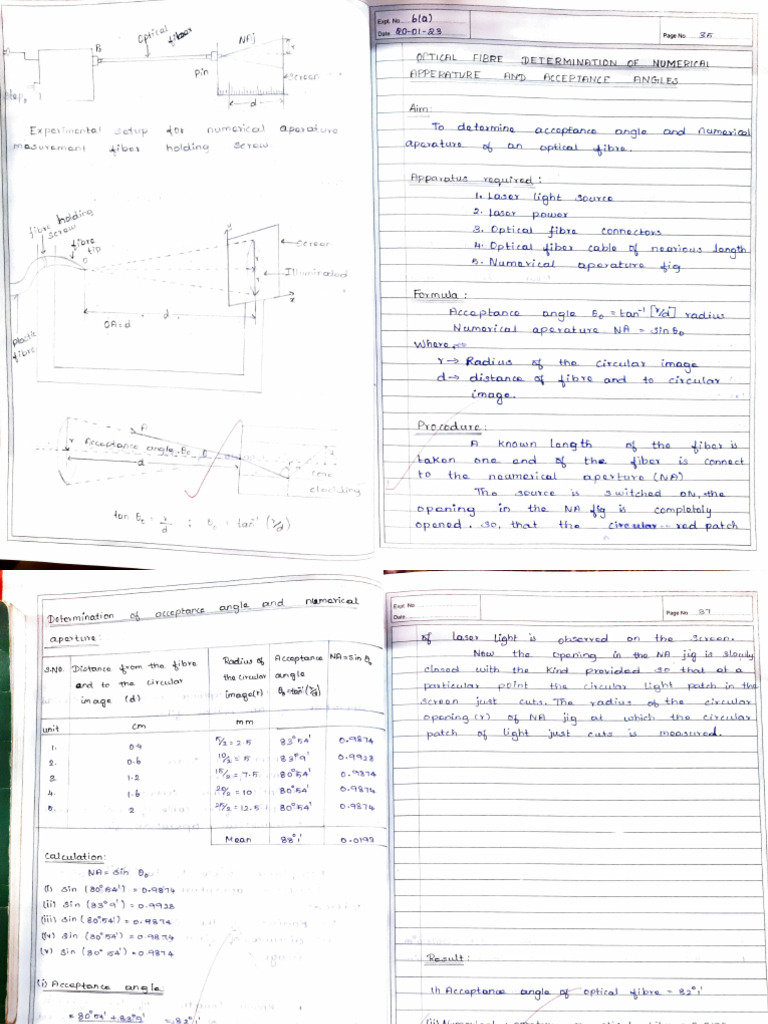 Optical fiber
B
NAj
r
Pin
Screen
d
Experimental setup for numerical aperature
measurement fiber holding screw
fibre holding
screw
fibre
tip
O
y
Screen
Illuminated
x
d
OA=d
Plastic
fibre
A
r
Acceptance angle θo
d
cone
tan θo = r/d ; θo = tan⁻¹ (r/d)
Expt. No. 6(a)
Date 20-01-23
Page No 35
OPTICAL FIBRE DETERMINATION OF NUMERICAL
APPERATURE AND ACCEPTANCE ANGLES
Aim:
To determine acceptance angle and numerical
aparature of an optical fibre.
Apparatus required:
1. Laser light source
2. Laser power
3. Optical fibre connectors
4. Optical fiber cable of nearious length
5. Numerical aperature fig
Formula:
Acceptance angle θo = tan⁻¹ [r/d] radius
Numerical aperature NA = sinθo
Where,
r→ Radius of the circular image
d→ distance of fibre and to circular
image.
Procedure:
A known length of the fiber is
taken one end of the fiber is connect
to the neumerical aperture (NA)
The source is switched ON, the
opening in the NA fig is completely
opened. so, that the circular red patch
Determination of acceptance angle and numerical
aperture:
S.No. Distance from the fibre and to the circular image (d) Radius of the circular image(r) Acceptance angle θo=tan⁻¹(r/d) NA=sin θo
unit cm mm
1. 0.4 5/2 = 2.5 83°54' 0.9874
2. 0.6 10/2 = 5 83°9' 0.9928
3. 1.2 15/2 = 7.5 80°54' 0.9874
4. 1.6 20/2 = 10 80°54' 0.9874
5. 2 25/2 = 12.5 80°54' 0.9874
Mean 88°1' 0.0193
Calculation:
NA = sin θo
(i) sin (80°54') = 0.9874
(ii) sin (83°9') = 0.9928
(iii) sin (80°54') = 0.9874
(iv) sin (80°54') = 0.9874
(v) sin (80°54') = 0.9874
(i) Acceptance angle
Expt. No
Date
Page No 37
of laser light is observed on the screen.
Now the opening in the NA jig is slowly
closed with the kind provided so that at a
particular point the circular light patch in the
screen just cuts. The radius of the circular
opening (r) of NA jig at which the circular
patch of light just cuts is measured.
Result:
(i) Acceptance angle of optical fibre = 82°1'